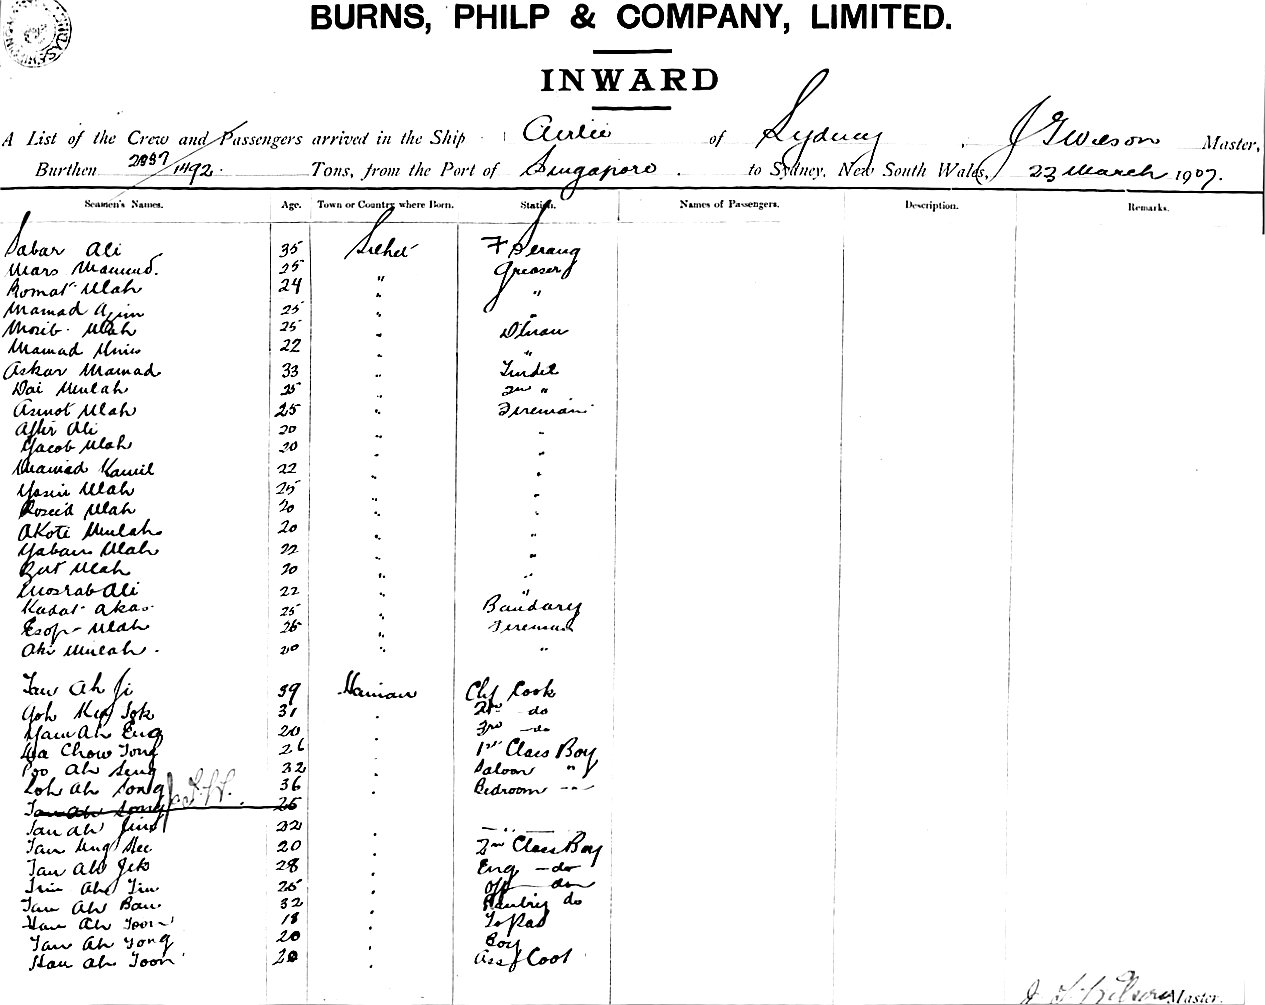 BURNS, PHILP & COMPANY, LIMITED.
INWARD
A List of the Crew and Passengers arrived in the Ship Airlie of Sydney, J G Wilson Master,
Burthen 2337/1492 Tons, from the Port of Singapore to Sydney, New South Wales, 23 March 1907.
Seamen's Names. Age. Town or Country where Born. Station. Names of Passengers. Description. Remarks.
Sabar Ali 35 Silhet F Serang
Mamud. 25 " Greaser
Romat Ulah 24 " "
Mamad Azim 25 " "
Morib Ulah 25 "
Mamad 22 " "
Askar Mamad 33 " Tindel
Dai Mulah 25 " 2nd "
Asmot Ulah 25 " Fireman
Ali 20 " "
Yacob Ulah 20 " "
Mamad Kamil 22 " "
Yasin Ulah 25 " "
Roseid Ulah 20 " "
Akoti Mulah 20 " "
Ulah 22 " "
Ulah 20 " "
Mosrab Ali 22 " "
Kadat Akas 25 " Bandary
Esop Ulah 25 " Fireman
Mulah 20 " "
Tan Ah Ji 39 Hainan Chf Cook
Goh 31 " 2nd do
Ah Eng 20 " 3rd do
Wa Chow Tong 26 " 1st Class Boy
Poo Ah Seng 32 " Saloon "
Loh Ah Song 36 " Bedroom "
Tan Ah Song 25
Tan Ah 22 " "
Tan Ung 20 " 2nd Class Boy
Tan Ah Jek 28 " Eng do
Ah 25 " Off do
Tan Ah Bau 32 " Pantry do
Han Ah Toon 18 " Topas
Tan Ah Tong 20 " Boy
Han Ah Toon 20 " Ass Cook
Master.